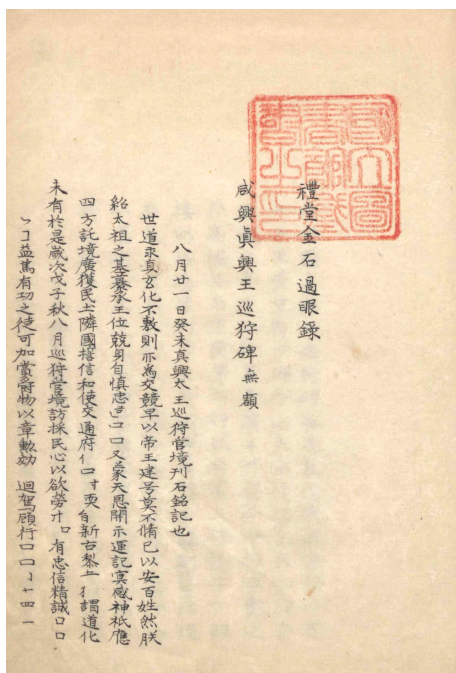 禮堂金石過眼錄
咸興眞興王巡狩碑 無額
八月廿一日癸未真興太王巡狩管境刊石銘記也
世道乖真玄化不敷則亦為交競早以帝王建号莫不脩己以安百姓然朕
紹太祖之基纂承王位兢身自慎恐 口口又蒙天恩開示運記冥感神祇應
四方託境廣獲民土隣國誓信和使交通府 口 自新古黎 謂道化
未有於是歲次戊子秋八月巡狩管境訪採民心以欲勞 口有忠信精誠口口
益篤有功之徒可加賞爵物以章勳効 迴駕顧行口口 十四一